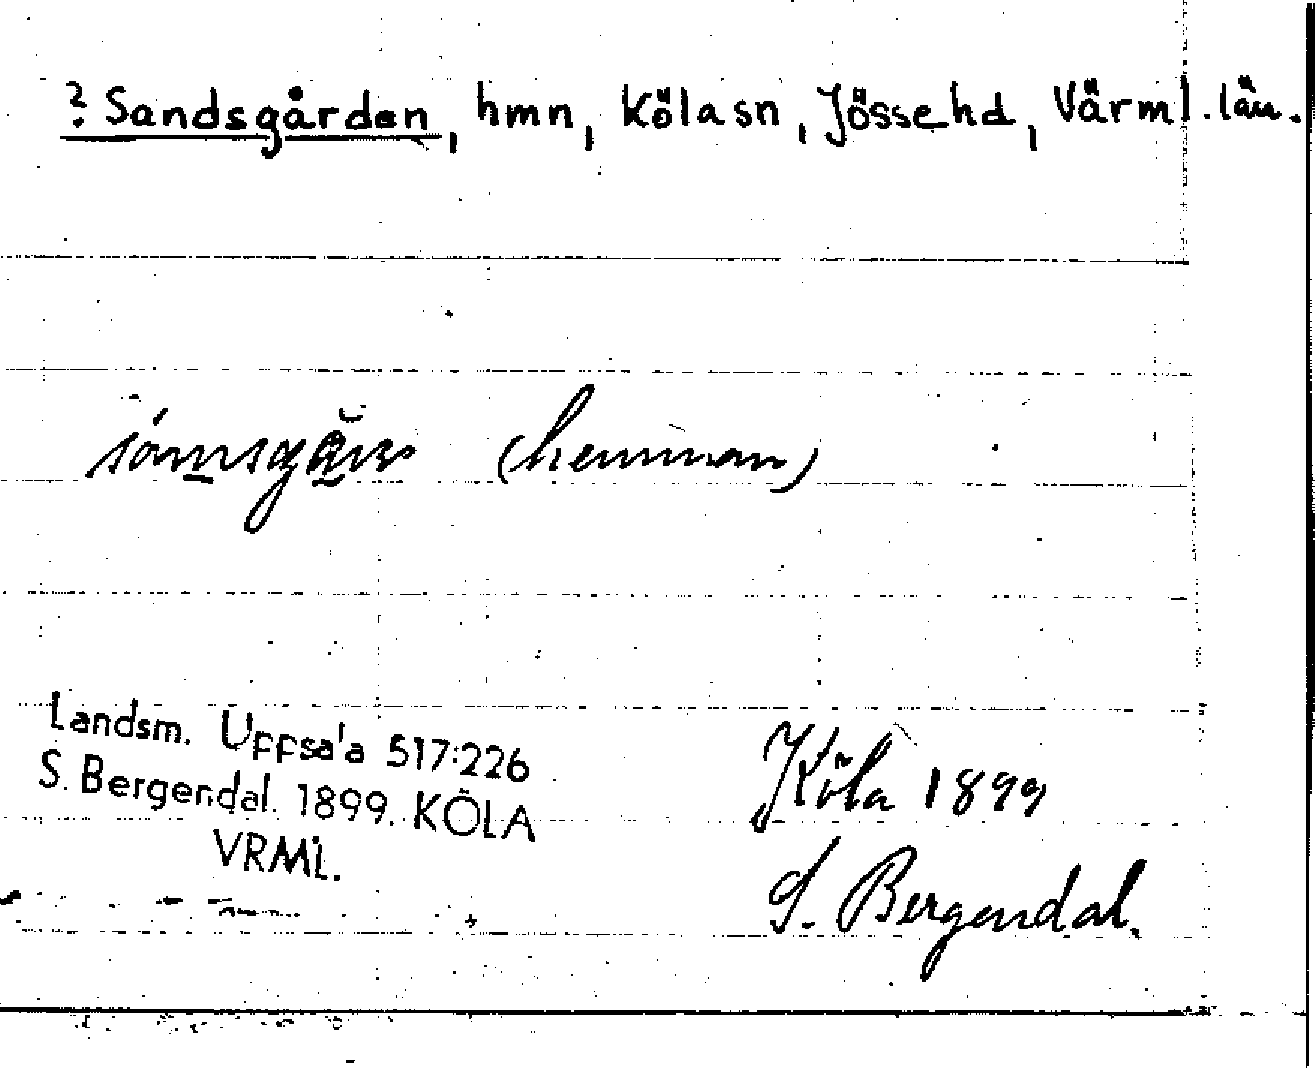 ? Sandsgården, hmn, Köla sn, Jösse hd, Värml. län.
(hemman)
Landsm. Uppsa'a 517:226
S. Bergendal. 1899. KÖLA
VRML.
Köla 1899
S. Bergendal.